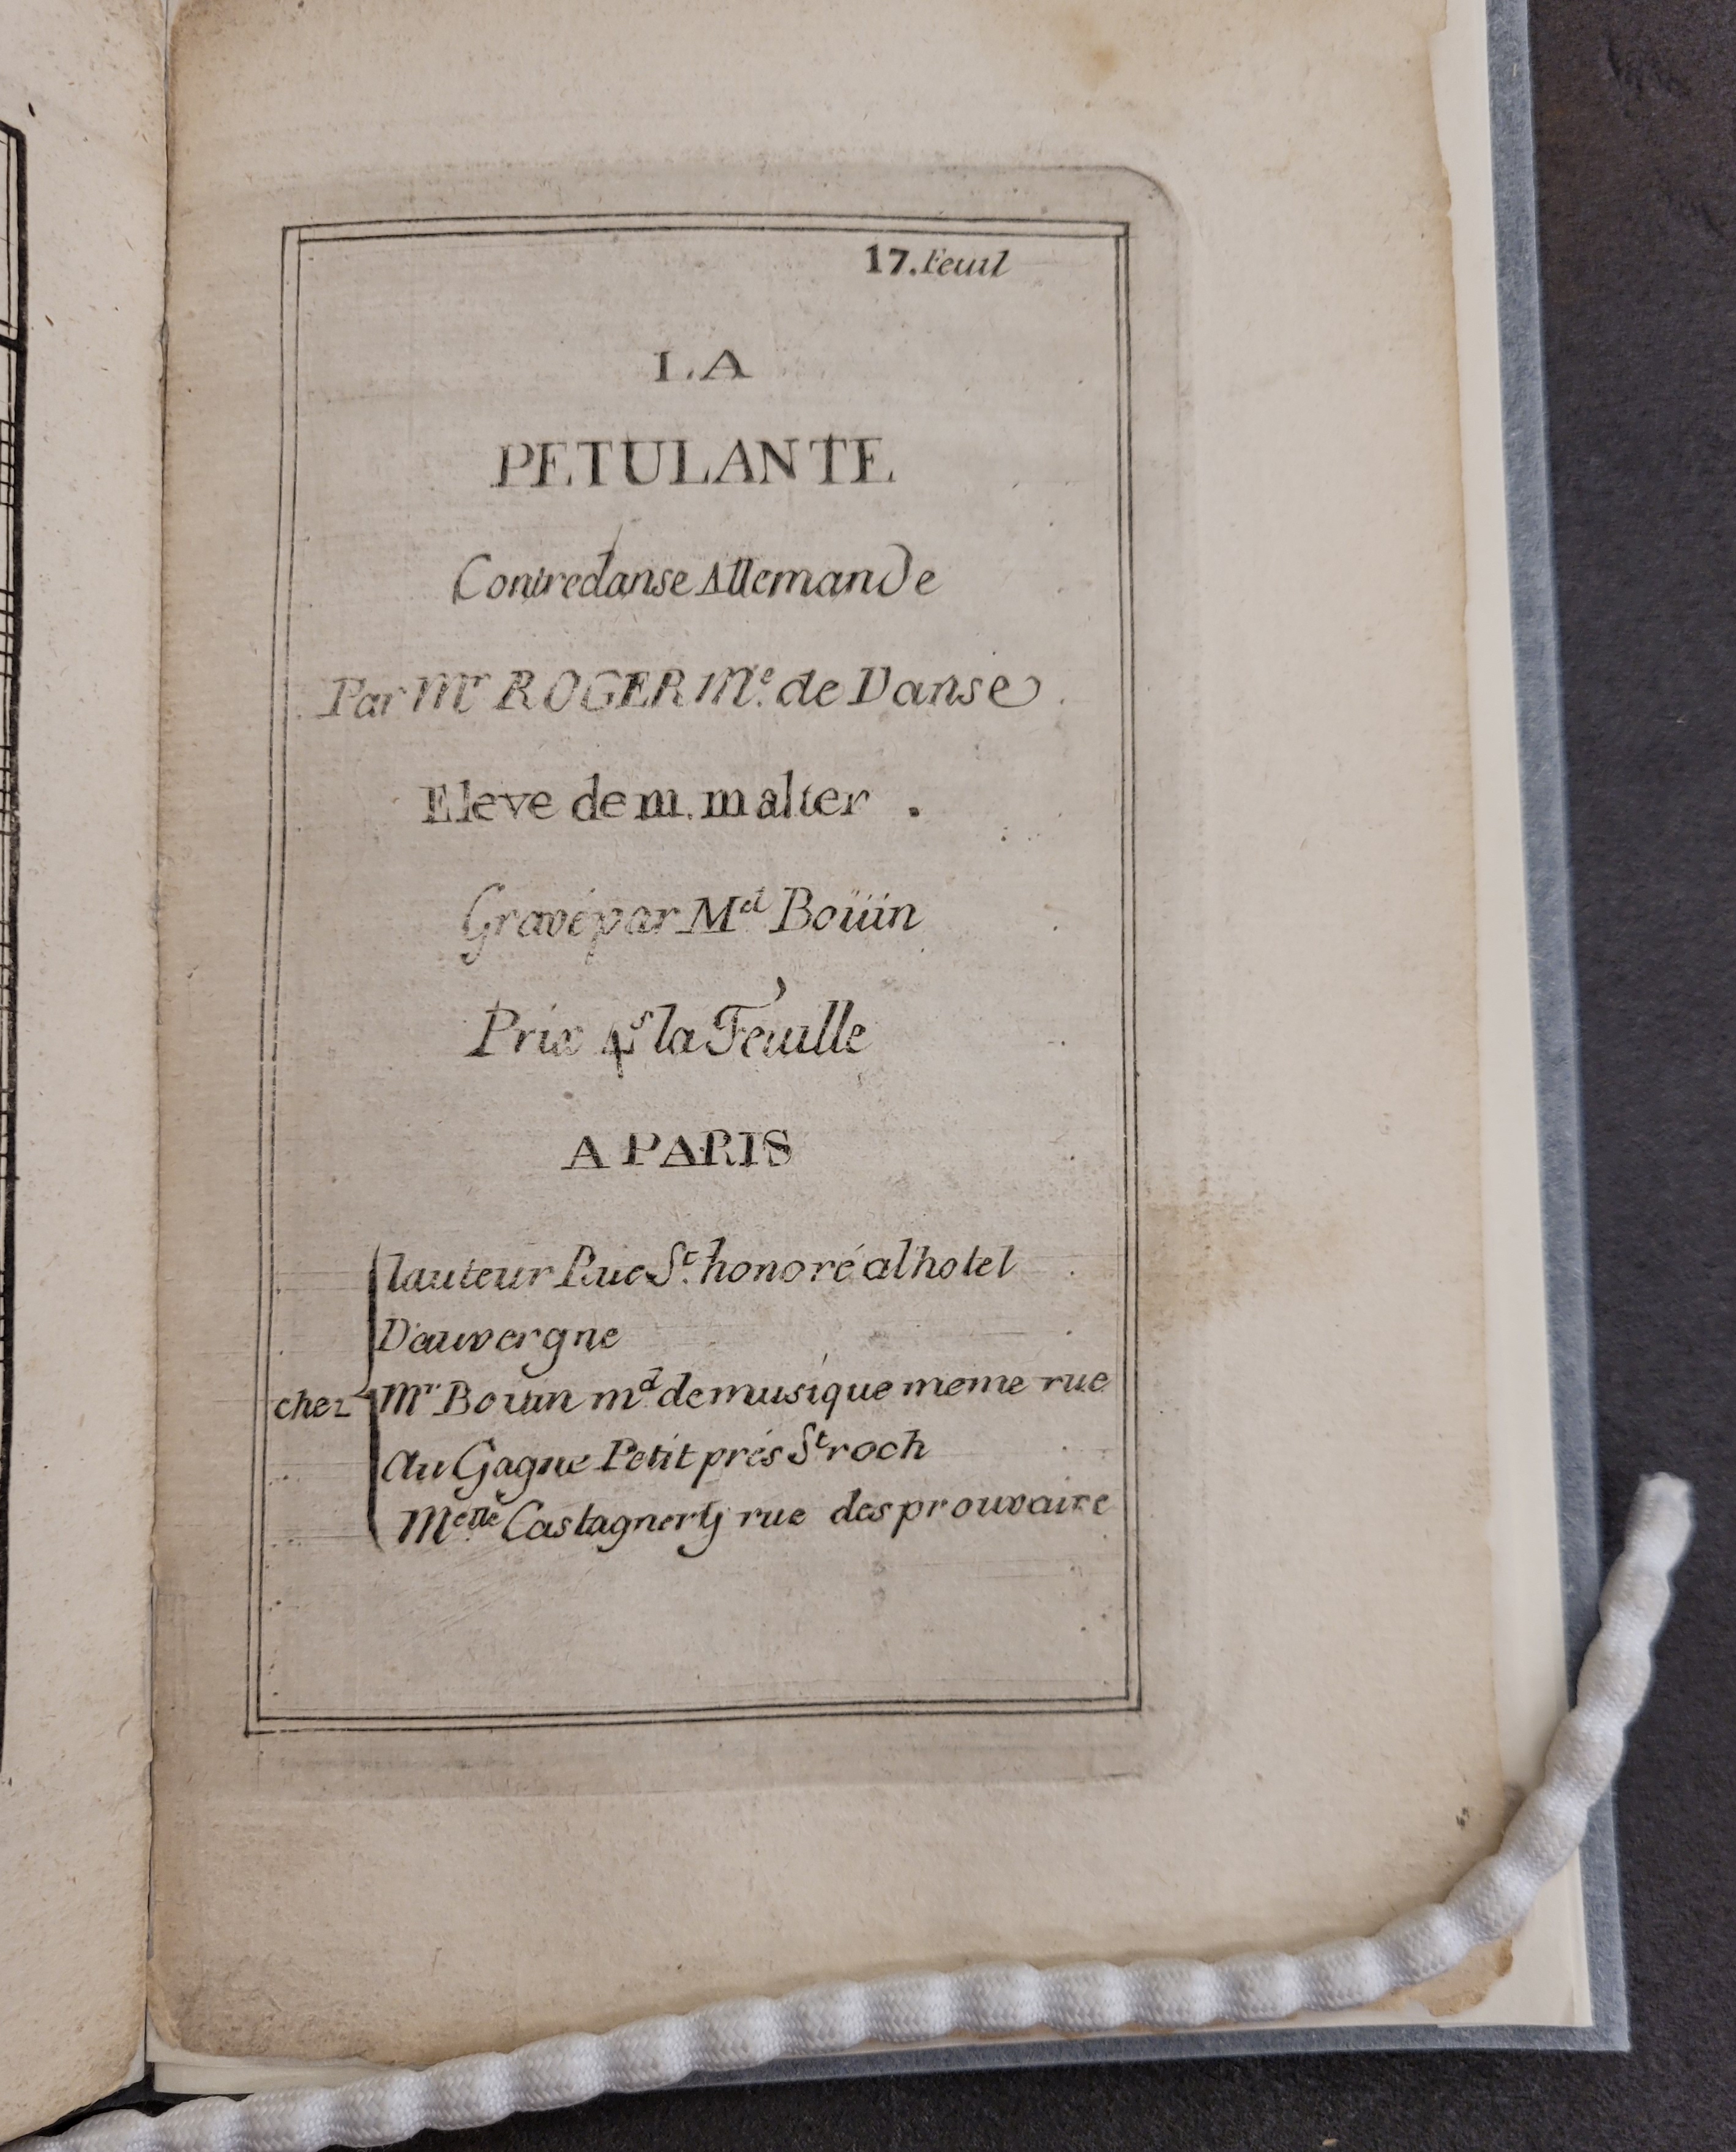 17. Feuil
LA
PETULANTE
Contredanse Allemande
Par Mr ROGER Me. de Danse
Eleve de m. malter .
Gravé par Md Boüin
Prix 4s la Feuille
A PARIS
lauteur Rue St. honoré al hotel
D'auvergne
chez Mr Bouin md. de musique meme rue
Au Gagne Petit prés St roch
Melle Castagnery rue des prouvaire